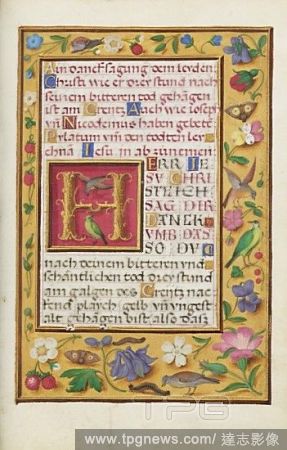 Am danckſagung dem leyden
Chriſti wie er drey ſtund nach
ſeinem bitteren tod gehangen
iſt am Creütz Auch wie ioſeph
vn Nicodemus haben gebete
Pylatum vm den todtten ley
chnā Ieſu in ab zunemen
HERR IE
SV CHRI
STE ICH
SAG DIR
DANK
VMB DAS
SO DV
nach deinem bitteren vnd
ſchäntlichen tod drey ſtund
am galgen des Creütz nac
kend playch gelb vn
alt gehangen biſt alſo das
TPG
www.tpgnews.com / 達志影像